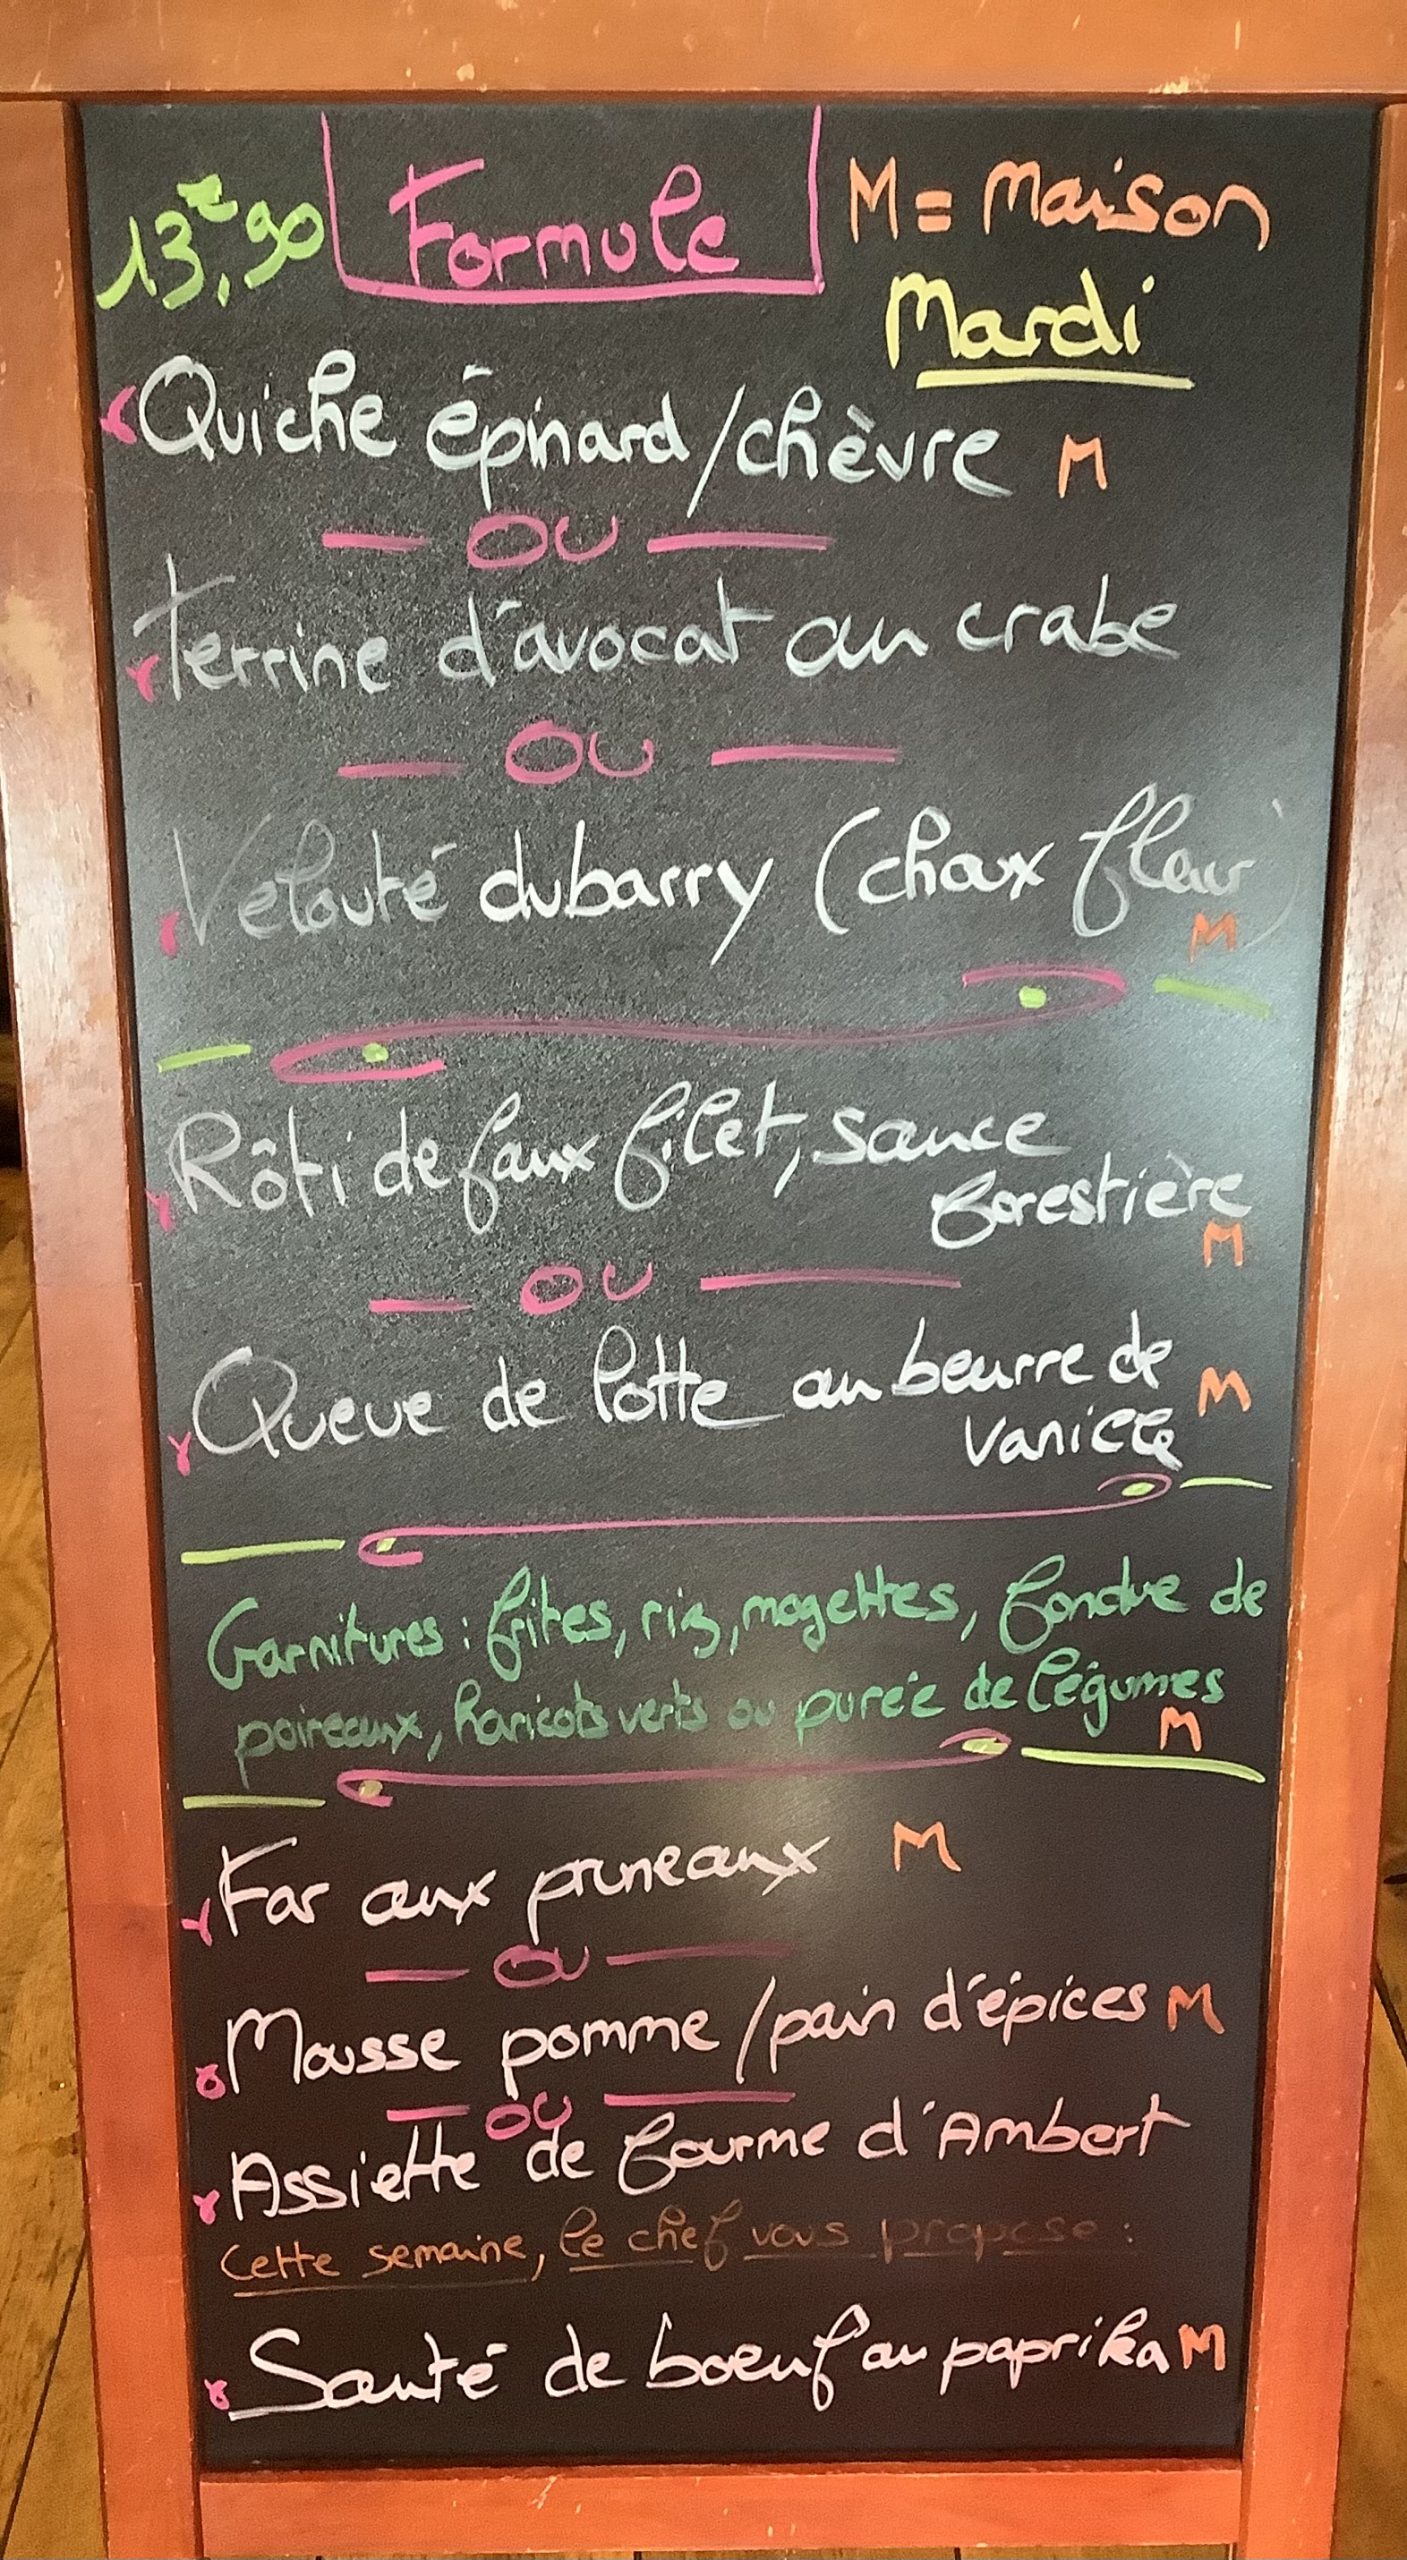 13€,90 Formule M = Maison
Mardi
Quiche épinard/chèvre M
OU
Terrine d'avocat au crabe
OU
Velouté dubarry (choux fleur)
M
Rôti de faux filet, sauce
forestière
M
OU
Queue de lotte au beurre de
vanille M
Garnitures : frites, riz, mogettes, fondue de
poireaux, haricots verts ou purée de légumes
M
Far aux pruneaux M
OU
Mousse pomme/pain d'épices M
OU
Assiette de fourme d'Ambert
Cette semaine, le chef vous propose :
Sauté de boeuf au paprika M